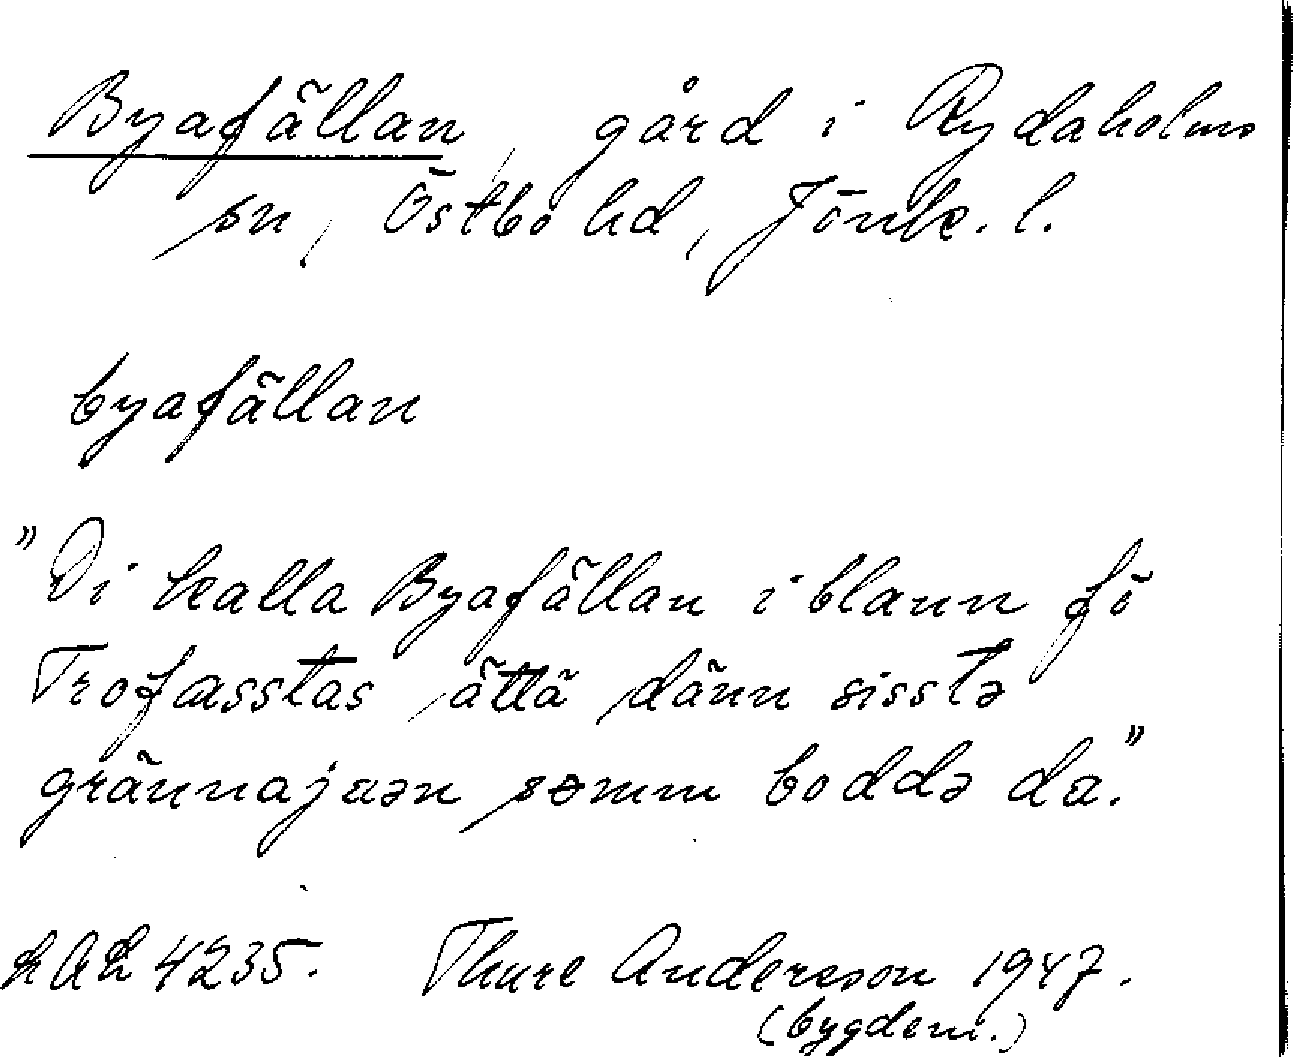 Byafällan, gård i Rydaholms
sn, Östbo hd, Jönk. l.
byafällan
"Di kalla Byafällan iblann fö
Trofasstas, ättä dänn sisstə
grännajuən somm boddə da."
LAL 4235. Thure Andersson 1947.
(bygdem.)